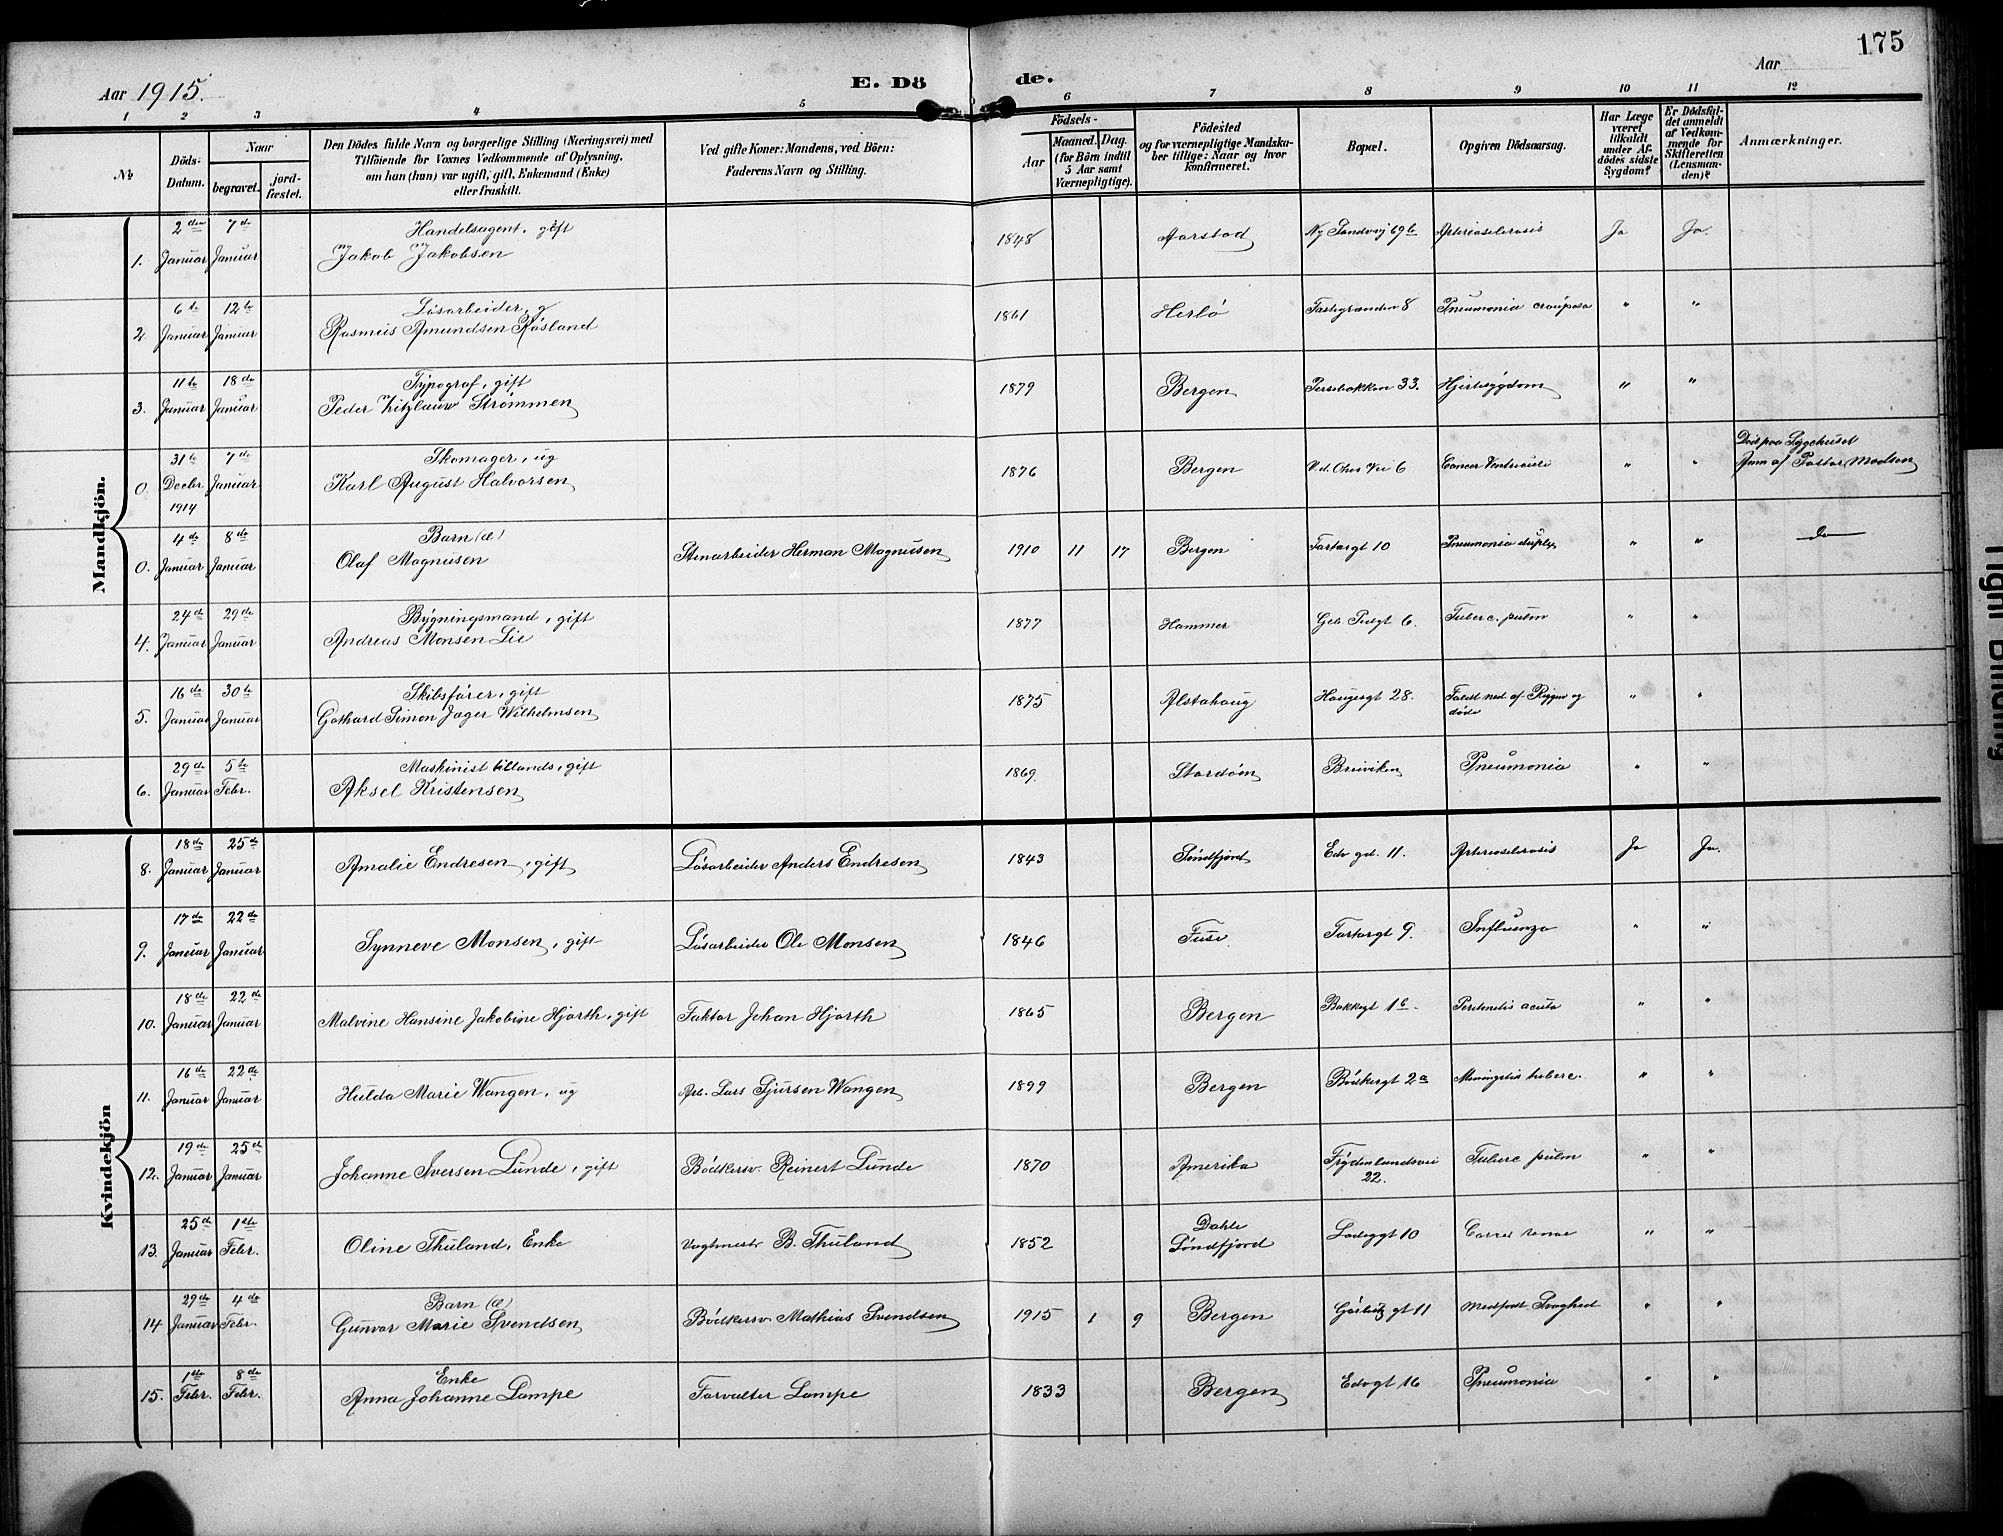 175
Aar 1915.
E. Dö de.
Aar
1 2 3 4 5 6 7 8 9 10 11 12
No
Döds-Datum.
Naar
begravet.
jord-fæstet.
Den Dödes fulde Navn og borgerlige Stilling (Næringsvei) med
Tilföiende for Voxnes Vedkommende af Oplysning,
om han (hun) var ugift, gift, Enkemand (Enke)
eller fraskilt.
Ved gifte Koner: Mandens, ved Börn:
Faderens Navn og Stilling.
Födsels-
Aar
Maaned. Dag.
(for Börn indtil
5 Aar samt
Værnepligtige).
Födested
og for værnepligtige Mandska-
ber tillige: Naar og hvor
konfirmeret.
Bopæl.
Opgiven Dödsaarsag.
Har Læge
været
tilkaldt
under Af-
dödes sidste
Sygdom?
Er Dödsfal-
det anmeldt
af Vedkom-
mende for
Skifteretten
(Lensman-
den)?
Anmærkninger.
Mandkjön.
1. 2den Januar 7de Januar Handelsagent, gift
Jakob Jakobsen 1848 Aarstad Ny Sandvvj 69b Arteriosclerosis Ja Ja.
2. 6te Januar 12te Januar Løsarbeider, g
Rasmus Amundsen Røsland 1861 Herlø 8 Pneumonia crouposa " "
3. 11te Januar 18de Januar Typograf, gift
Peder Strømmen 1879 Bergen Persebakken 33. Hjertesygdom " "
0. 31te Decbr 1914 7de Januar Skomager, ug
Karl August Halvorsen 1876 Bergen 6 Cancer Ventriculi " " Død paa Sygehuset
Anm af Pastor Madsen
0. 4de Januar 8de Januar Barn (æ)
Olaf Magnusen Stenarbeider Herman Magnusen 1910 11 17 Bergen Tartargt 10 Pneumonia duplex " " Do
4. 24de Januar 29de Januar Bygningsmand, gift
Andreas Monsen Lie 1877 Hammer 6. Tuberc. pulm " "
5. 16de Januar 30te Januar Skibsfører, gift
Gothard Simon Jager Wilhelmsen 1875 Alstahaug Haugesgt 28. Faldt ned af Riggen og
døde " "
6. 29de Januar 5te Febr. Maskinist tillands, gift
Aksel Kristensen 1869. Stordøen Breiviken Pneumonia " "
Kvindekjön
8. 18de Januar 25de Januar Amalie Endresen, gift Løsarbeider Anders Endresen 1843 Søndfjord Edv gd. 11. Arteriosclerosis Ja Ja.
9. 17de Januar 22de Januar Synneve Monsen, gift Løsarbeider Ole Monsen 1846 Fuse. Tartargt 9. Influenza " "
10. 18de Januar 22de Januar Malvine Hansine Jakobine Hjorth, gift Faktor Johan Hjorth 1865 Bergen Bakkegt 1b Peritonitis acuta " "
11. 16de Januar 22de Januar Hulda Marie Wangen, ug Arb. Lars Sjursen Wangen 1899 Bergen Bødkergt 2a Meningitis tuberc. " "
12. 19de Januar 25de Januar Johanne Iversen Lunde, gift Bødkersv. Reinert Lunde 1870 Amerika Frydenlundsvei
22. Tuberc pulm " "
13. 25de Januar 1ste Febr. Oline Thuland, Enke Vagtmestr B. Thuland 1852 Dahle
Søndfjord Ladeggt 10 " "
14 29de Januar 4de Febr. Barn (æ)
Gunvor Marie Svendsen Bødkersv Mathias Svendsen 1915 1 9 Bergen gt 11 Medfødt Svaghed " "
15. 1ste Febr. 8de Febr. Enke
Anna Johanne Lampe Forvalter Lampe 1833 Bergen Edvgt 16 Pneumonia " "